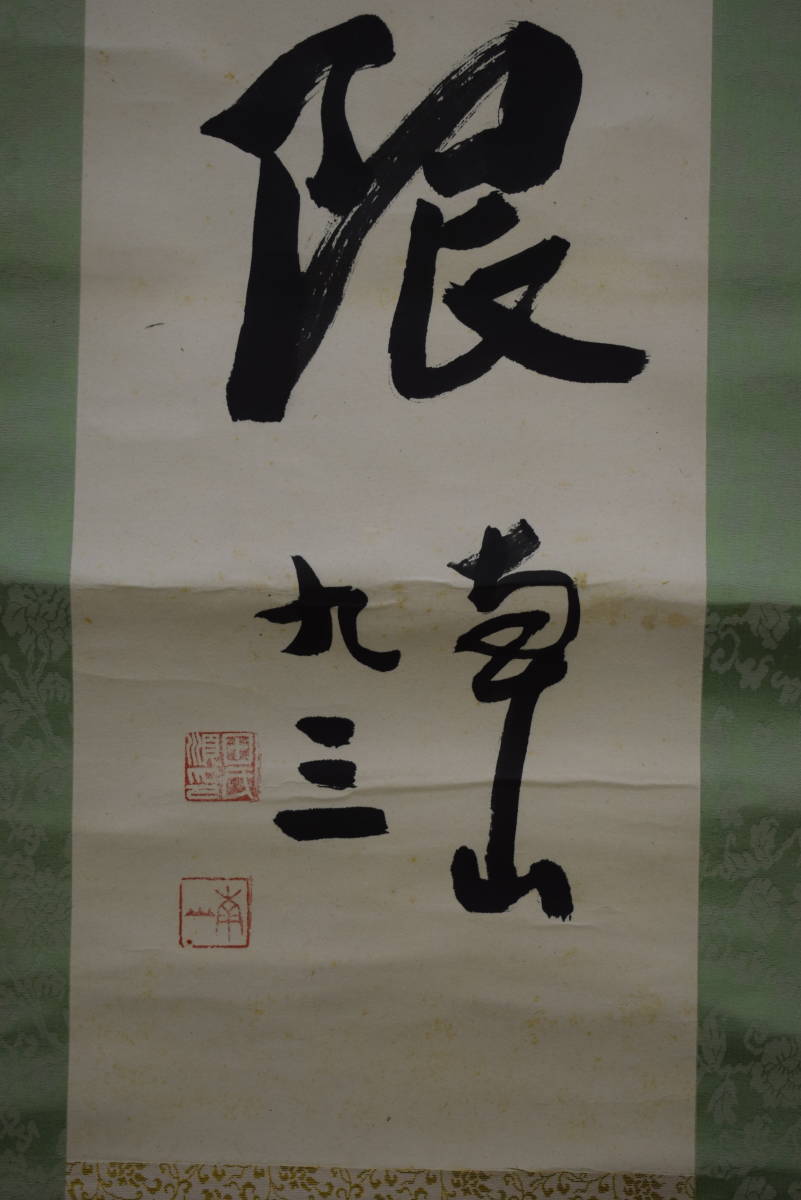 限
南山
九三